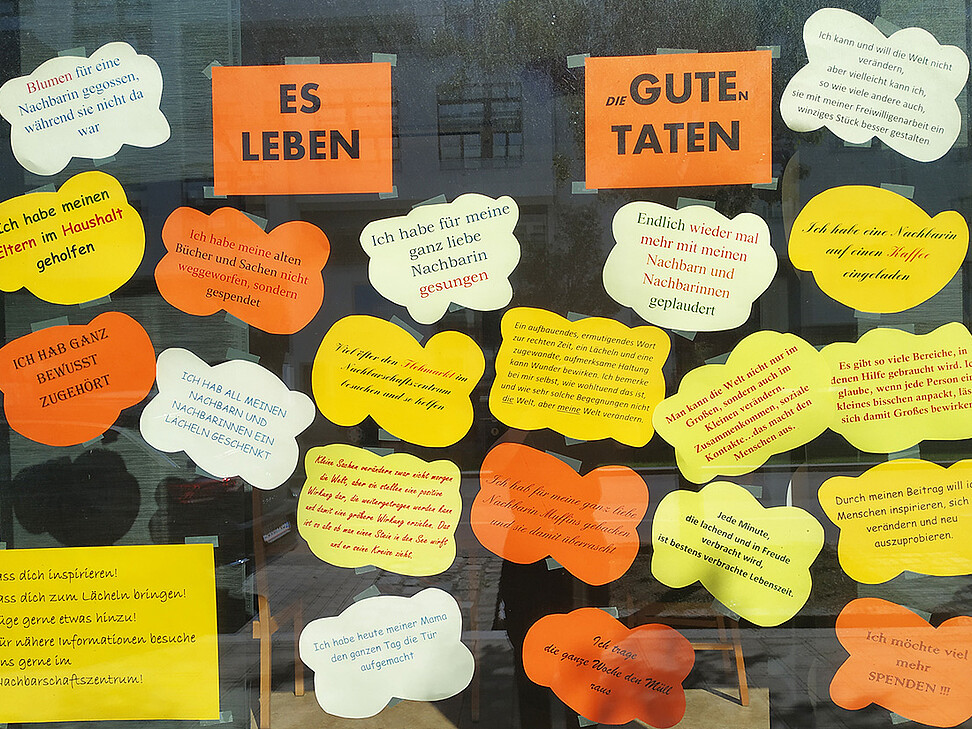 Blumen für eine
Nachbarin gegossen,
während sie nicht da
war
ES
LEBEN
DIE GUTEN
TATEN
Ich kann und will die Welt nicht
verändern,
aber vielleicht kann ich,
so wie viele andere auch,
sie mit meiner Freiwilligenarbeit ein
winziges Stück besser gestalten
Ich habe meinen
Eltern im Haushalt
geholfen
Ich habe meine alten
Bücher und Sachen nicht
weggeworfen, sondern
gespendet
Ich habe für meine
ganz liebe
Nachbarin
gesungen
Endlich wieder mal
mehr mit meinen
Nachbarn und
Nachbarinnen
geplaudert
Ich habe eine Nachbarin
auf einen Kaffee
eingeladen
ICH HAB GANZ
BEWUSST
ZUGEHÖRT
ICH HAB ALL MEINEN
NACHBARN UND
NACHBARINNEN EIN
LÄCHELN GESCHENKT
Viel öfter den Flohmarkt im
Nachbarschaftszentrum
besuchen und so helfen
Ein aufbauendes, ermutigendes Wort
zur rechten Zeit, ein Lächeln und eine
zugewandte, aufmerksame Haltung
kann Wunder bewirken. Ich bemerke
bei mir selbst, wie wohltuend das ist,
und wie sehr solche Begegnungen nicht
die Welt, aber meine Welt verändern.
Man kann die Welt nicht nur im
Großen, sondern auch im
Kleinen verändern.
Zusammenkommen, soziale
Kontakte...das macht den
Menschen aus.
Es gibt so viele Bereiche, in
denen Hilfe gebraucht wird. Ic
glaube, wenn jede Person ein
kleines bisschen anpackt, läs
sich damit Großes bewirken
Kleine Sachen verändern zwar nicht morgen
die Welt, aber sie stellen eine positive
Wirkung dar, die weitergetragen werden kann
und damit eine größere Wirkung erzielen. Das
ist so als ob man einen Stein in den See wirft
und er seine Kreise zieht.
Ich hab für meine ganz liebe
Nachbarin Muffins gebacken
und sie damit überrascht
Jede Minute,
die lachend und in Freude
verbracht wird,
ist bestens verbrachte Lebenszeit.
Durch meinen Beitrag will ic
Menschen inspirieren, sich
verändern und neu
auszuprobieren.
ass dich inspirieren!
ass dich zum Lächeln bringen!
üge gerne etwas hinzu!
ür nähere Informationen besuche
ns gerne im
Nachbarschaftszentrum!
Ich habe heute meiner Mama
den ganzen Tag die Tür
aufgemacht
Ich trage
die ganze Woche den Müll
raus
Ich möchte viel
mehr
SPENDEN !!!